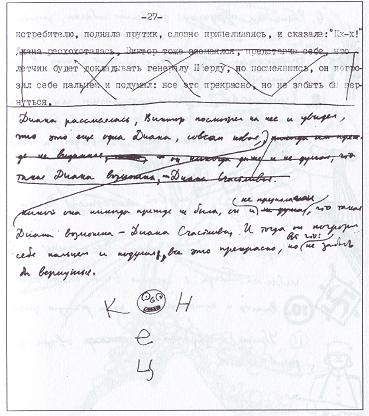 -27-
истребителю, подняла прутик, словно прицеливаясь, и сказала: "Кх-х!"
Диана расхохоталась, Виктор тоже засмеялся, представив себе, что
летчик будет докладывать генералу Пферду, но посмеявшись, он погро-
зил себе пальцем и подумал: все это прекрасно, но не забыть бы вер-
нуться.
Диана рассмеялась, Виктор посмотрел на нее и увидел,
что это еще одна Диана, совсем новая,
де не
он никогда даже и не думал, что
такая Диана возможна, - Диана Счастливая.
какой она никогда прежде не была, он и не предполагал
не думал, что такая
Диана возможна - Диана Счастливая. И тогда он погрозил
себе пальцем и подумал, все это прекрасно, но не забыть
бы вернуться.
К О Н
е
ц